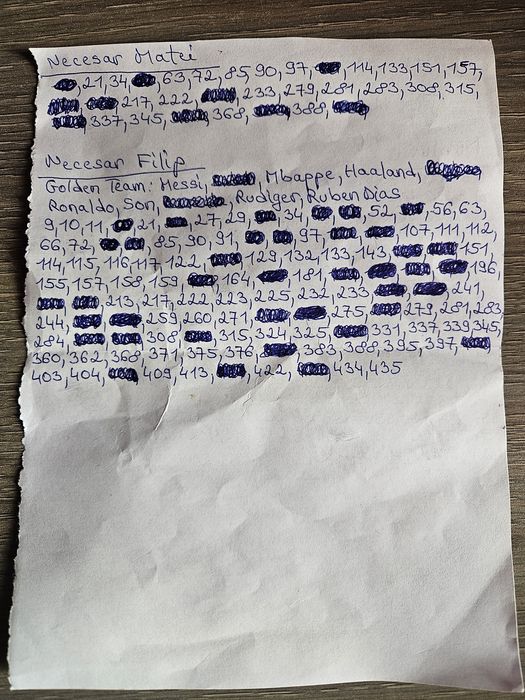 Necesar Matei
21,34, 63,72, 85,90,97, 114,133,151,157,
217,222, 233,279,281,283,308,315,
337,345, 368, 388,
Necesar Filip
Golden Team: Messi, Mbappe, Haaland,
Ronaldo, Son, Rudiger, Ruben Dias
9,10,11, 21, 27,29, 34, 52, 56,63,
66,72, 85,90,91, 97, 107,111,112,
114,115,116,117,122, 129,132,133,143, 151,
155,157,158,159, 164, 181, 196,
213,217,222,223,225,232,233, 241,
244, 259,260,271, 275, 279,281,283,
284, 308, 315, 324,325, 331,337,339,345,
360,362,368,371,375,376, 383,388,395,397,
403,404, 409,413, 422, 434,435